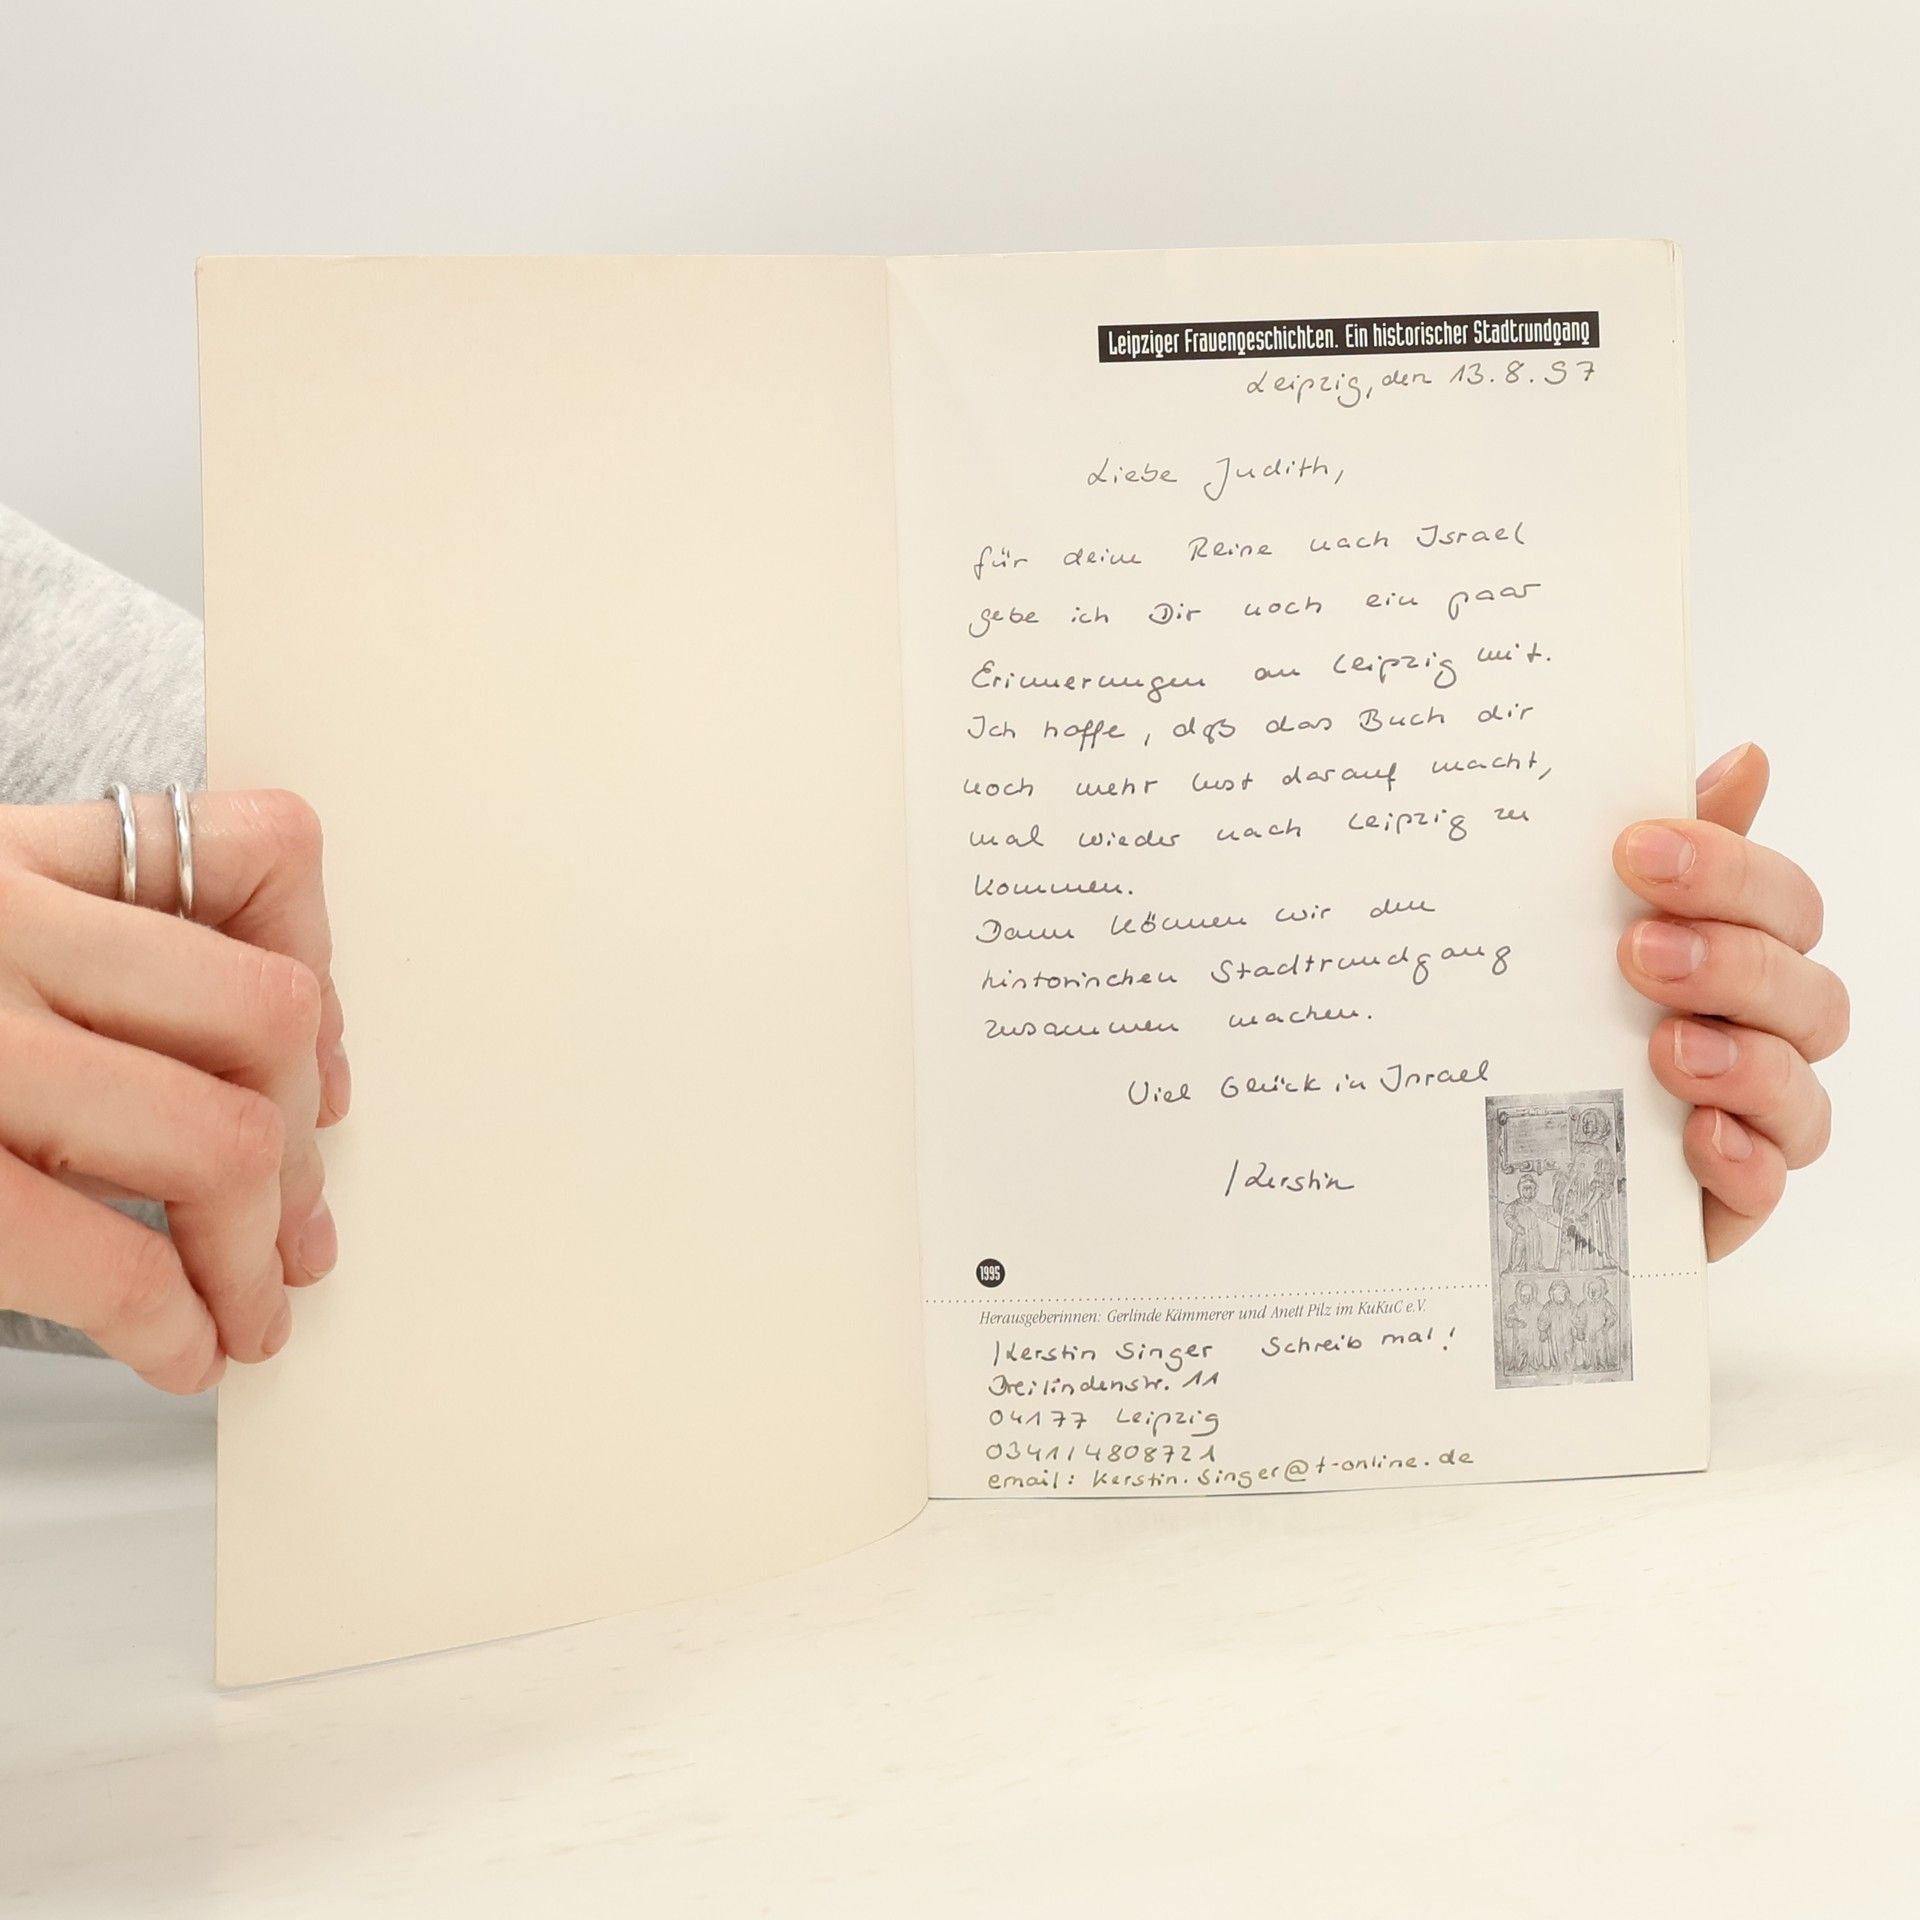 Leipziger Frauengeschichten. Ein historischer Stadtrundgang
Leipzig, den 13.8.97
Liebe Judith,
für deine Reise nach Israel
gebe ich Dir noch ein paar
Erinnerungen an Leipzig mit.
Ich hoffe, daß das Buch dir
noch mehr Lust darauf macht,
mal wieder nach Leipzig zu
kommen.
Dann können wir den
historischen Stadtrundgang
zusammen machen.
Viel Glück in Israel
Kerstin
1995
Herausgeberinnen: Gerlinde Kämmerer und Anett Pilz im KuKuC e.V.
Kerstin Singer Schreib mal!
Dreilindenstr. 11
04177 Leipzig
0341/4808721
email: Kerstin.Singer@t-online.de